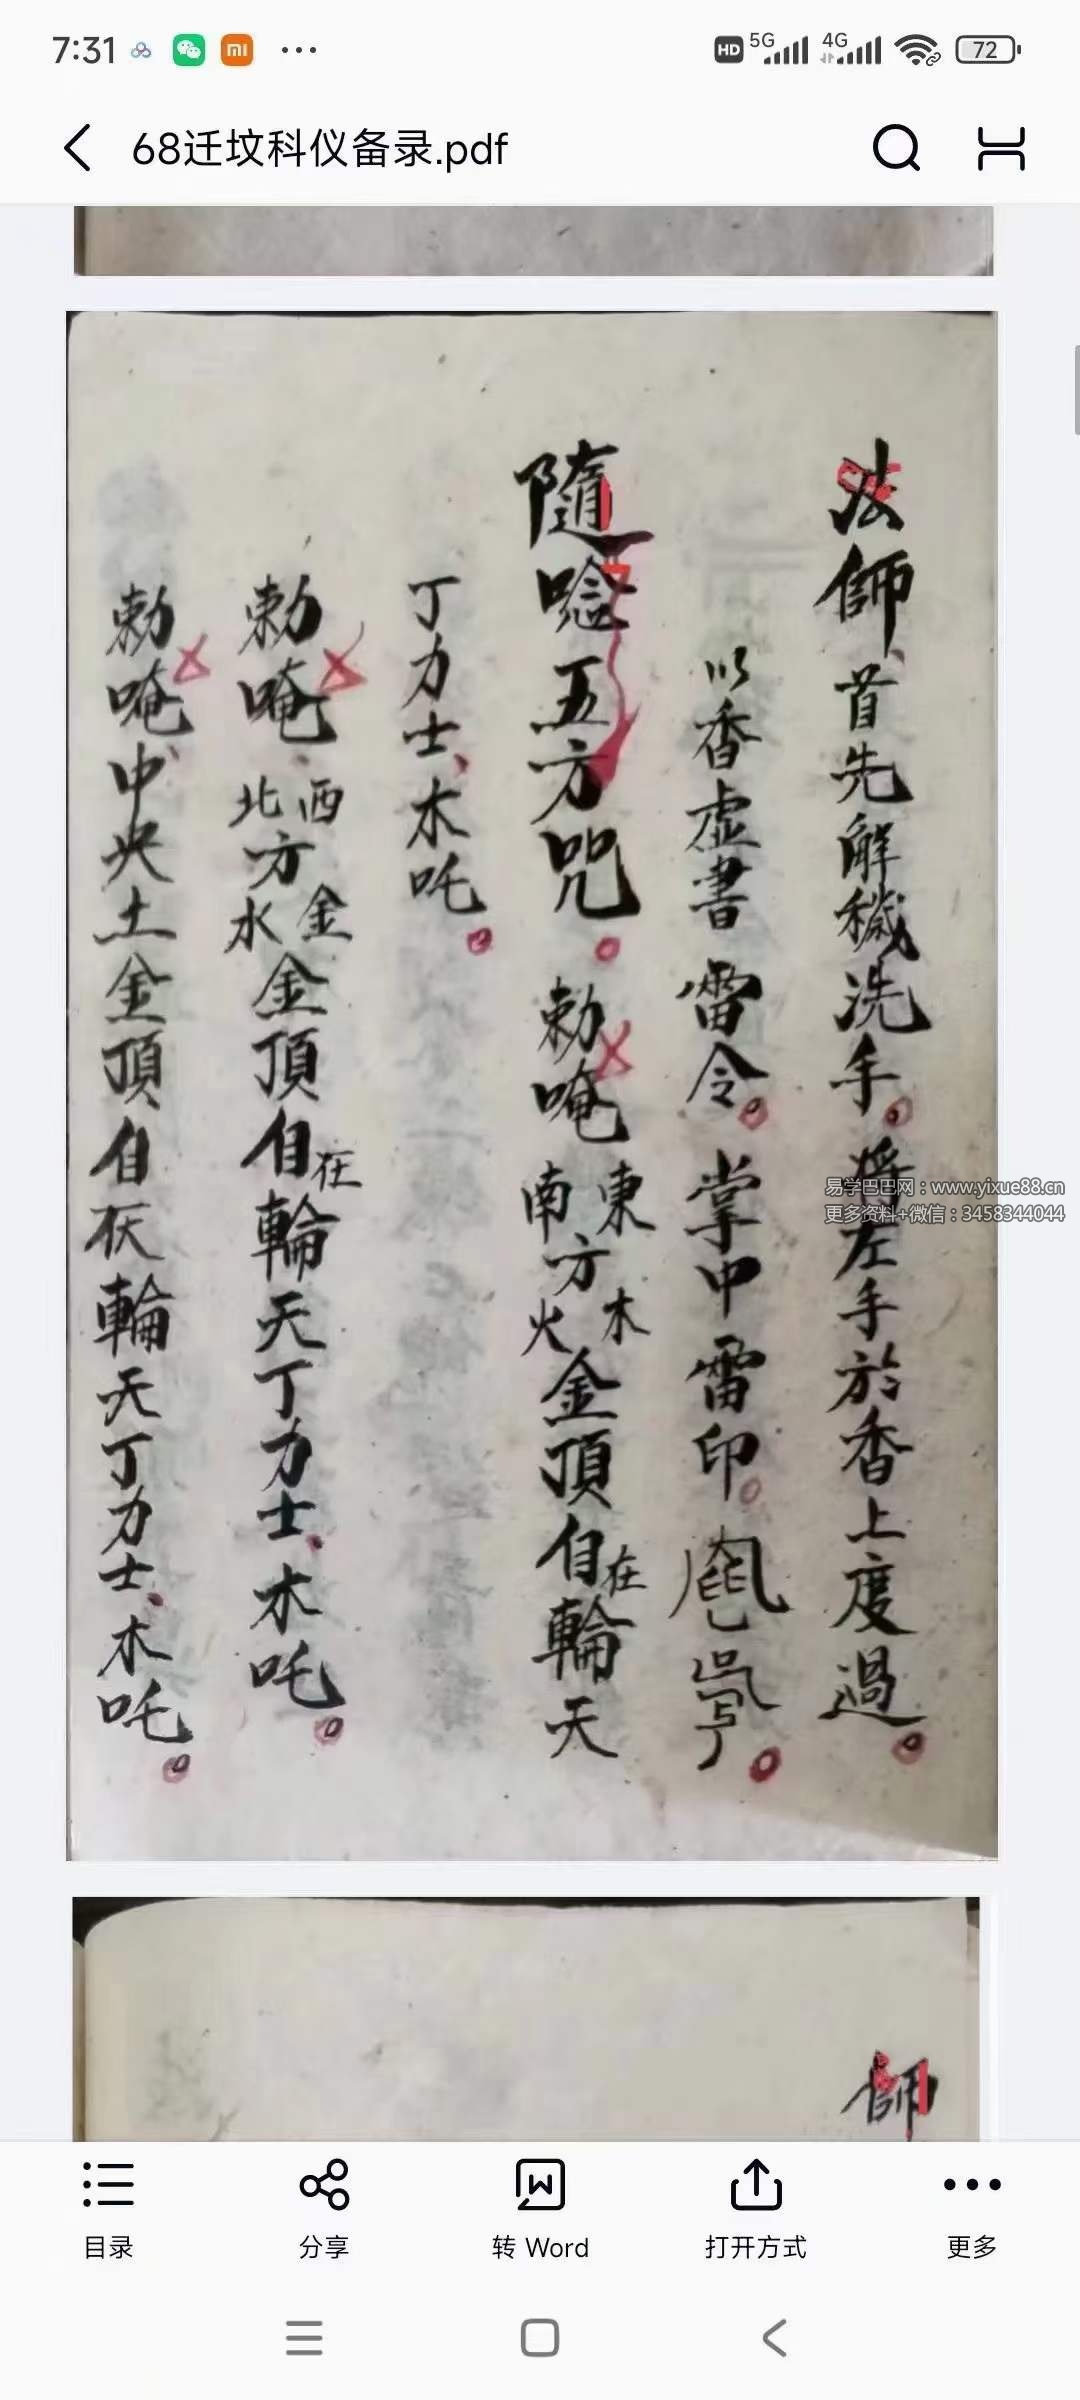 7:31
HD 5G 4G 72
68迁坟科仪备录.pdf
法師首先解穢洗手。將左手於香上度過。
以香虛書雷令。掌中雷印。
隨唸五方咒。勅唵東南方木火金頂自在輪天
丁力士、木吒。
勅唵西北方金水金頂自在輪天丁力士、木吒。
勅唵中央土金頂自在輪天丁力士、木吒。
易学巴巴网:www.yixue88.cn
更多资料+微信:3458344044
師
目录
分享
转 Word
打开方式
更多